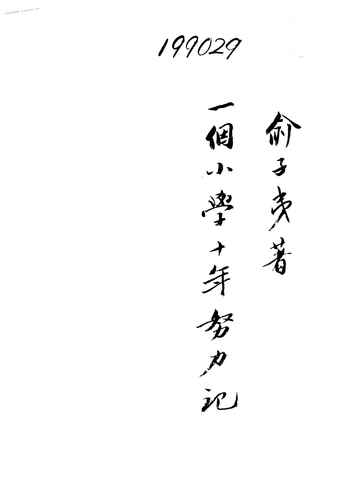 199029
俞子夷著
一個小學十年努力記